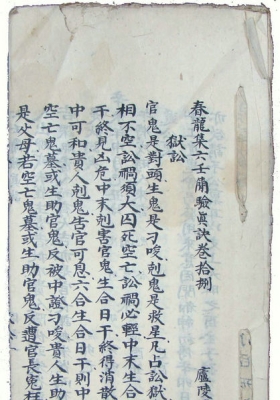 春龍集六壬屑驗真訣卷拾捌　廬陵
獄訟
官鬼是對頭生鬼是刁唆剋鬼是救星凡占訟獄
相不空訟禍須大囚死空亡訟禍必輕中末生合
干終見凶危中末剋害官鬼生合日干終得消散
中可和貴人剋鬼告官可息六合生合日干則中
空亡鬼墓或生助官鬼反被中證刁唆貴人生助
是父母若空亡鬼墓或生助官鬼反遭官長冤枉